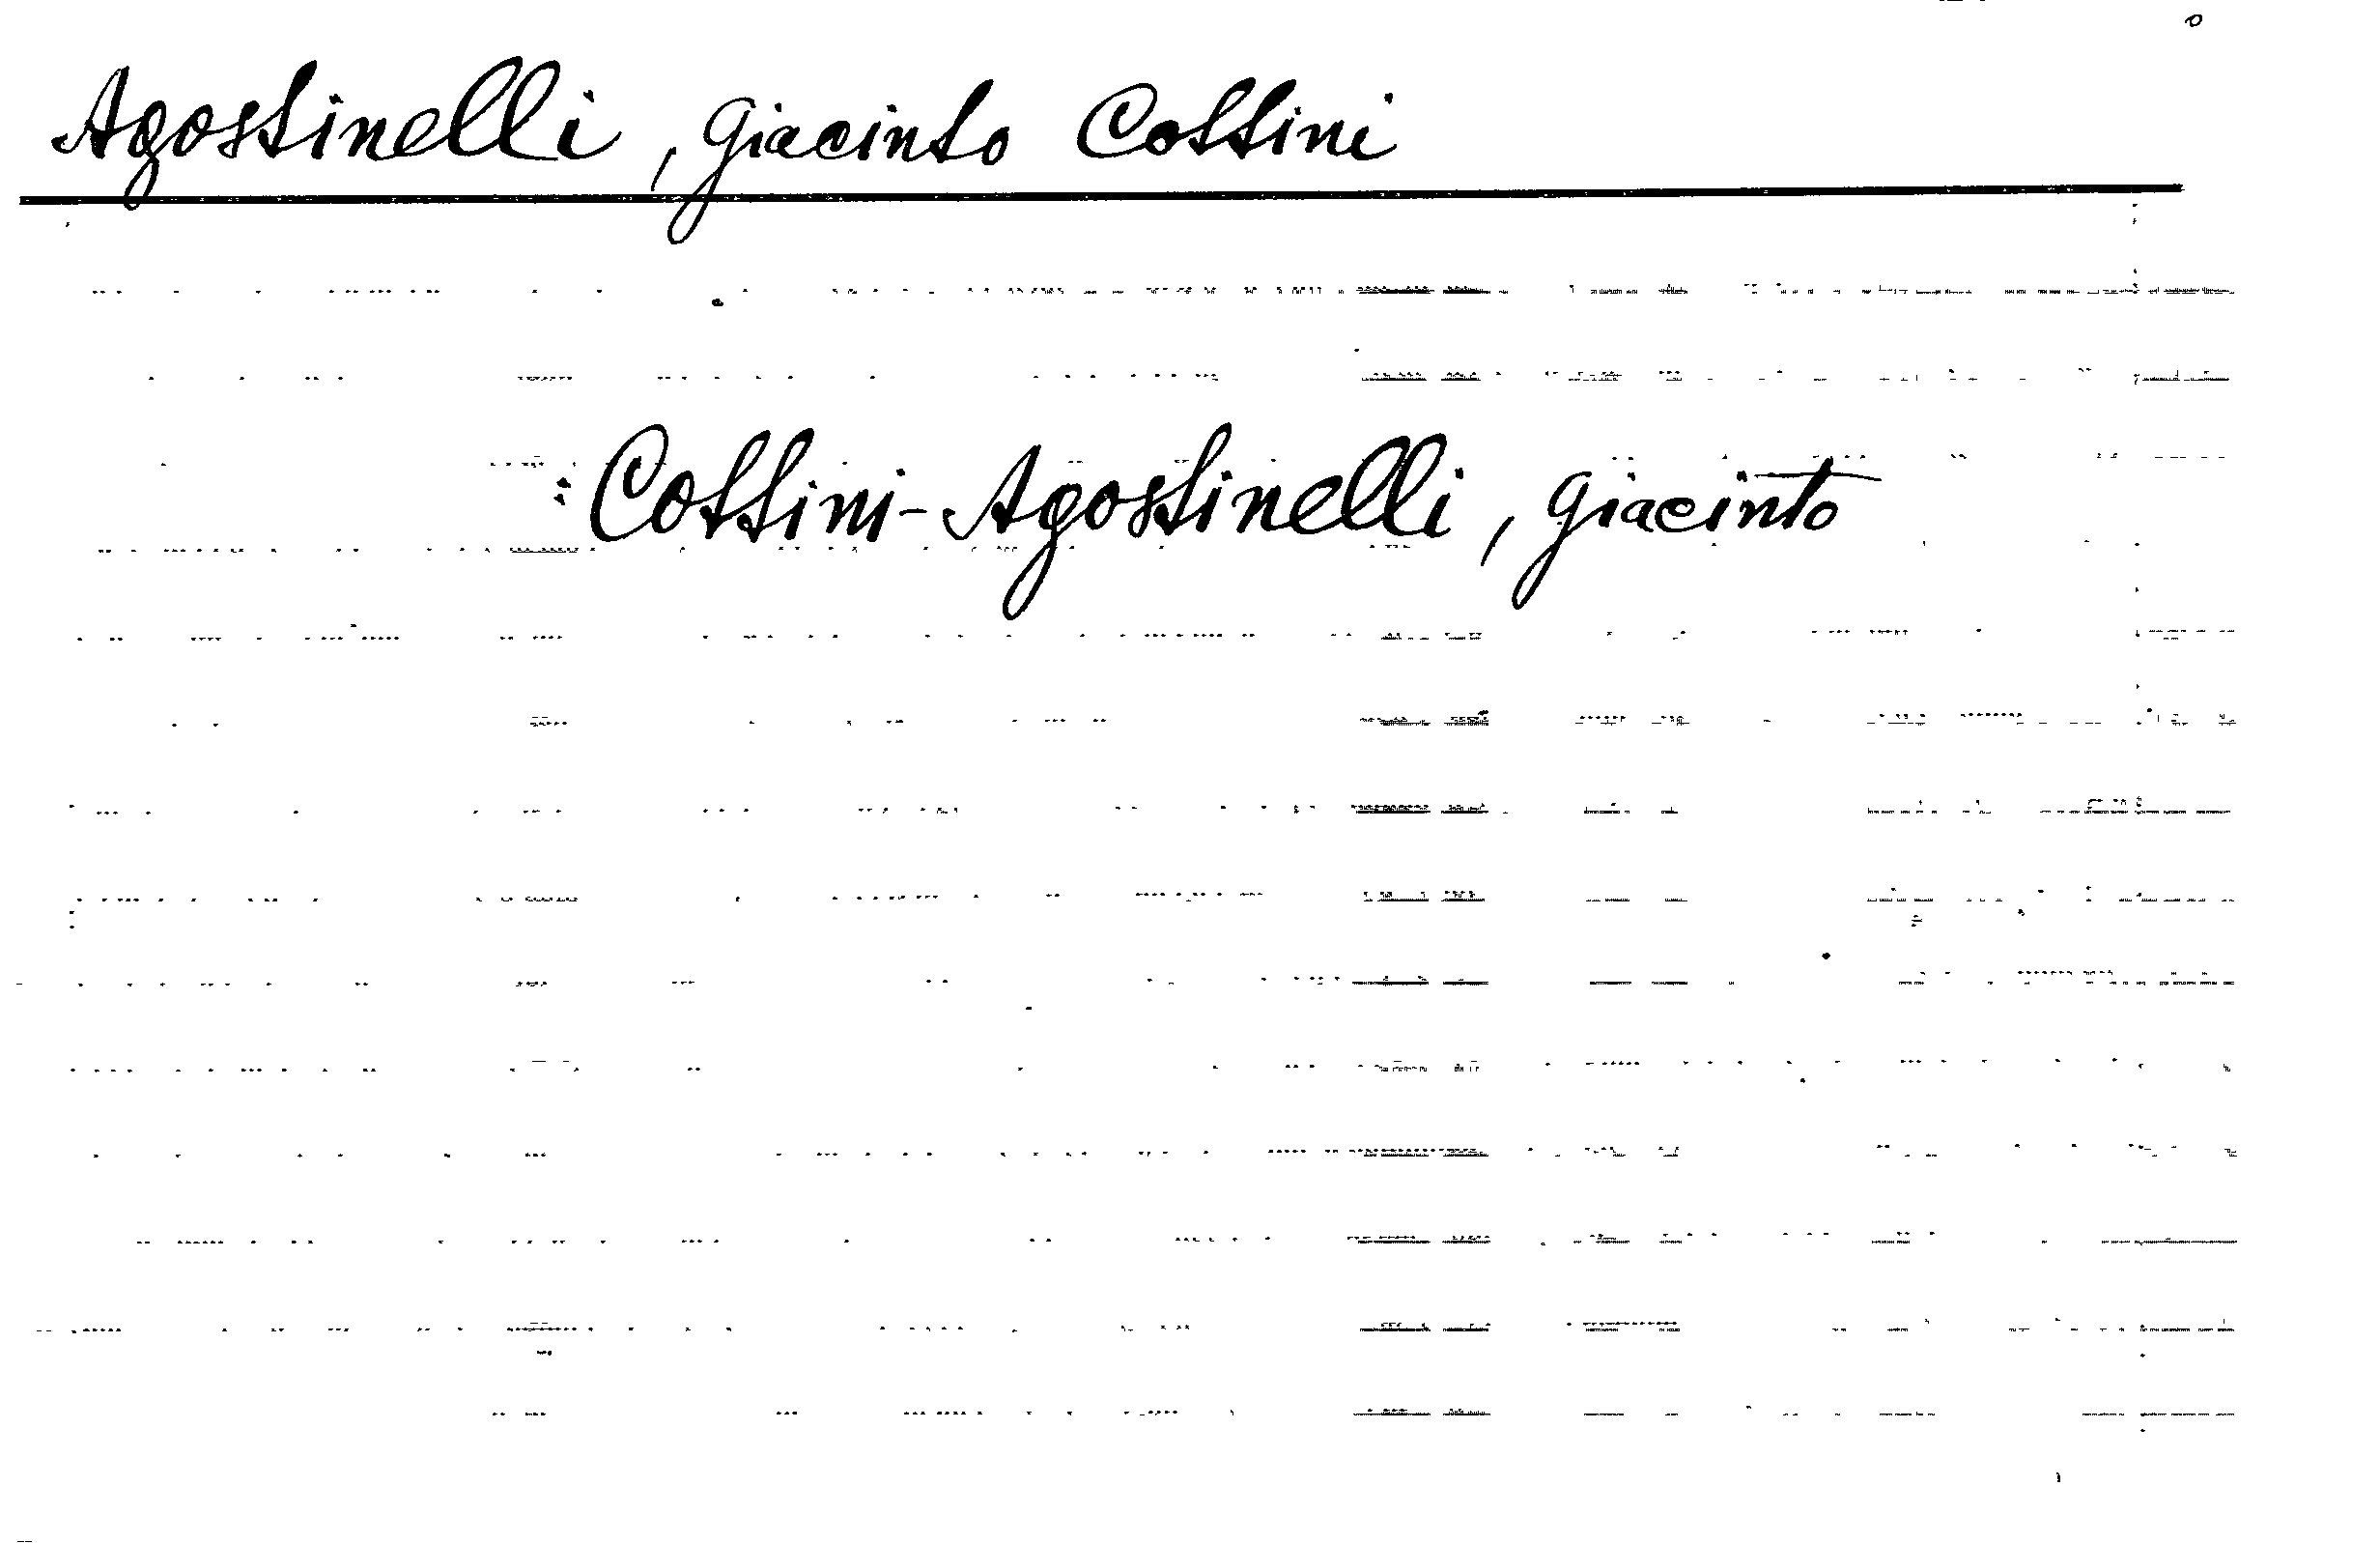 Agostinelli, Giacinto Cottini
: Cottini-Agostinelli, Giacinto